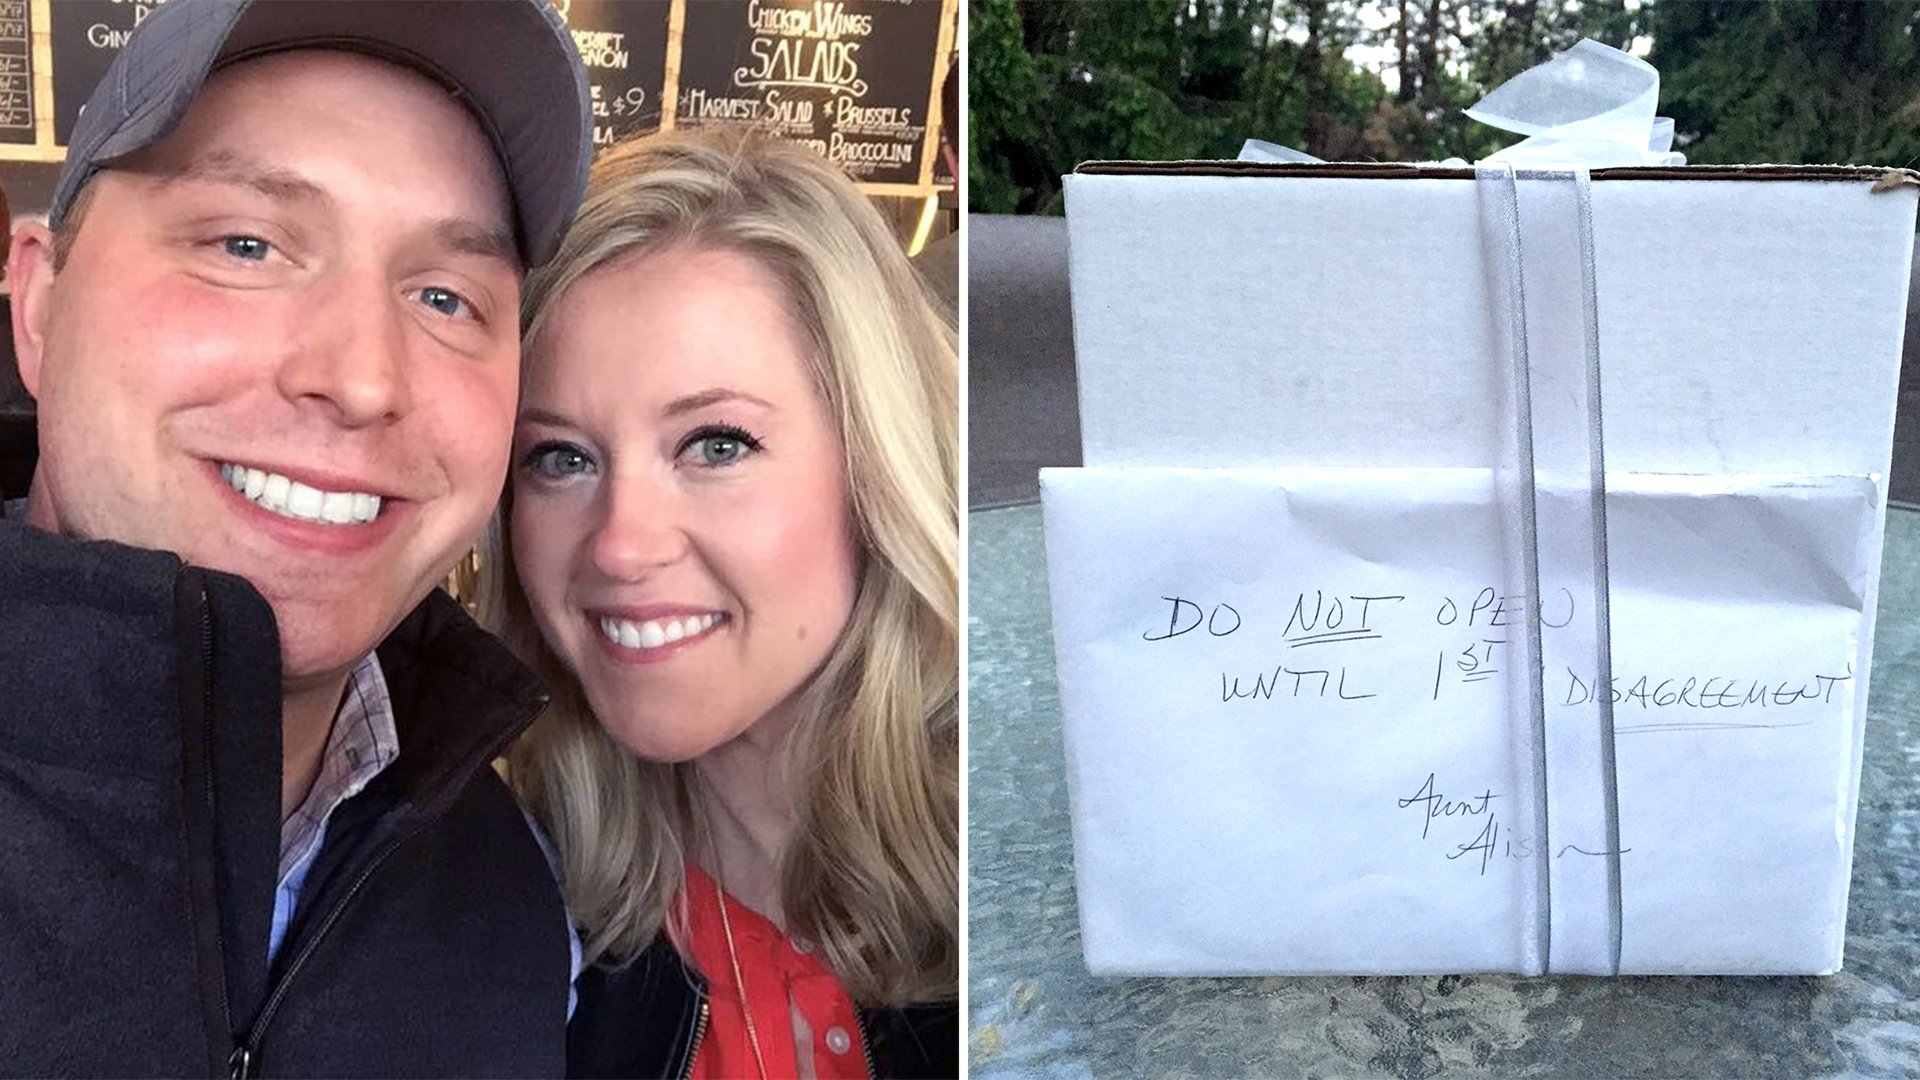 GIN
$9
CHICKEN WINGS
SALADS
HARVEST SALAD * BRUSSELS
BROCCOLINI
DO NOT OPEN
UNTIL 1ST "DISAGREEMENT"
Aunt
Alison